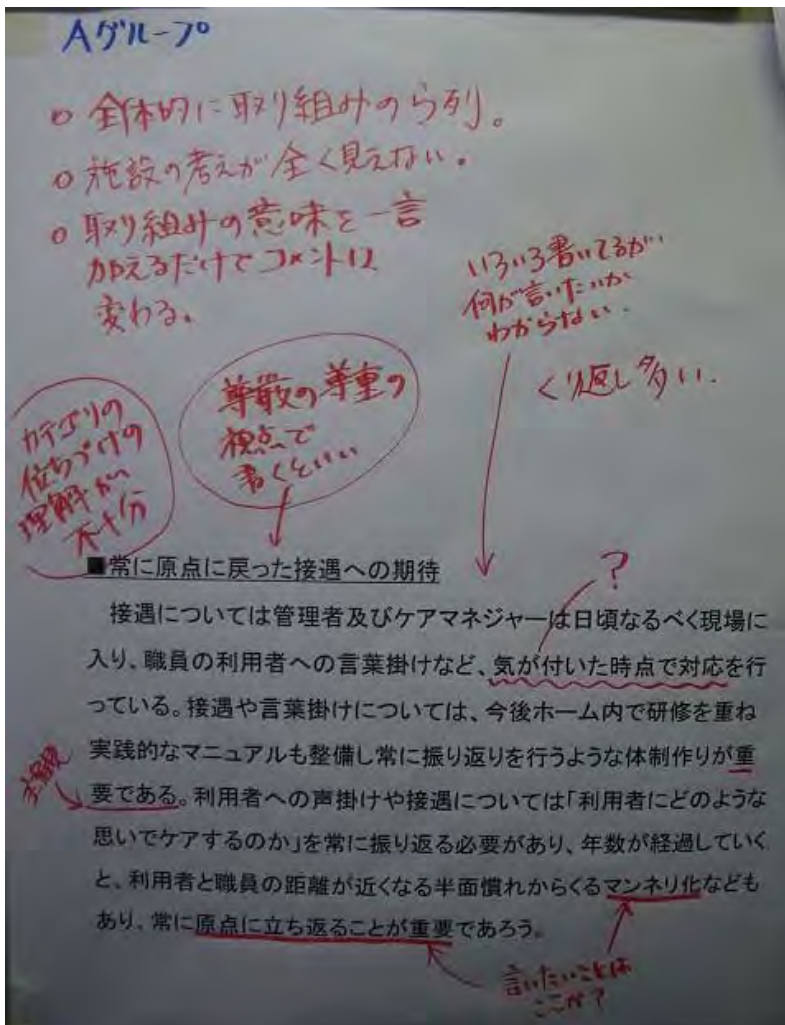 Aグループ
○ 全体的に取り組みのら列。
○ 施設の考えが全く見えない。
○ 取り組みの意味を一言
加えるだけでコメントは
変わる。
いろいろ書いてるが
何が言いたいか
わからない.
くり返し多い.
尊厳の尊重の
視点で
書くといい
カテゴリの
位ちづけの
理解が
不十分
■常に原点に戻った接遇への期待
?
接遇については管理者及びケアマネジャーは日頃なるべく現場に
入り、職員の利用者への言葉掛けなど、気が付いた時点で対応を行
っている。接遇や言葉掛けについては、今後ホーム内で研修を重ね
実践的なマニュアルも整備し常に振り返りを行うような体制作りが重
要である。利用者への声掛けや接遇については「利用者にどのような
思いでケアするのか」を常に振り返る必要があり、年数が経過していく
と、利用者と職員の距離が近くなる半面慣れからくるマンネリ化なども
あり、常に原点に立ち返ることが重要であろう。
言いたいことは
ここか?